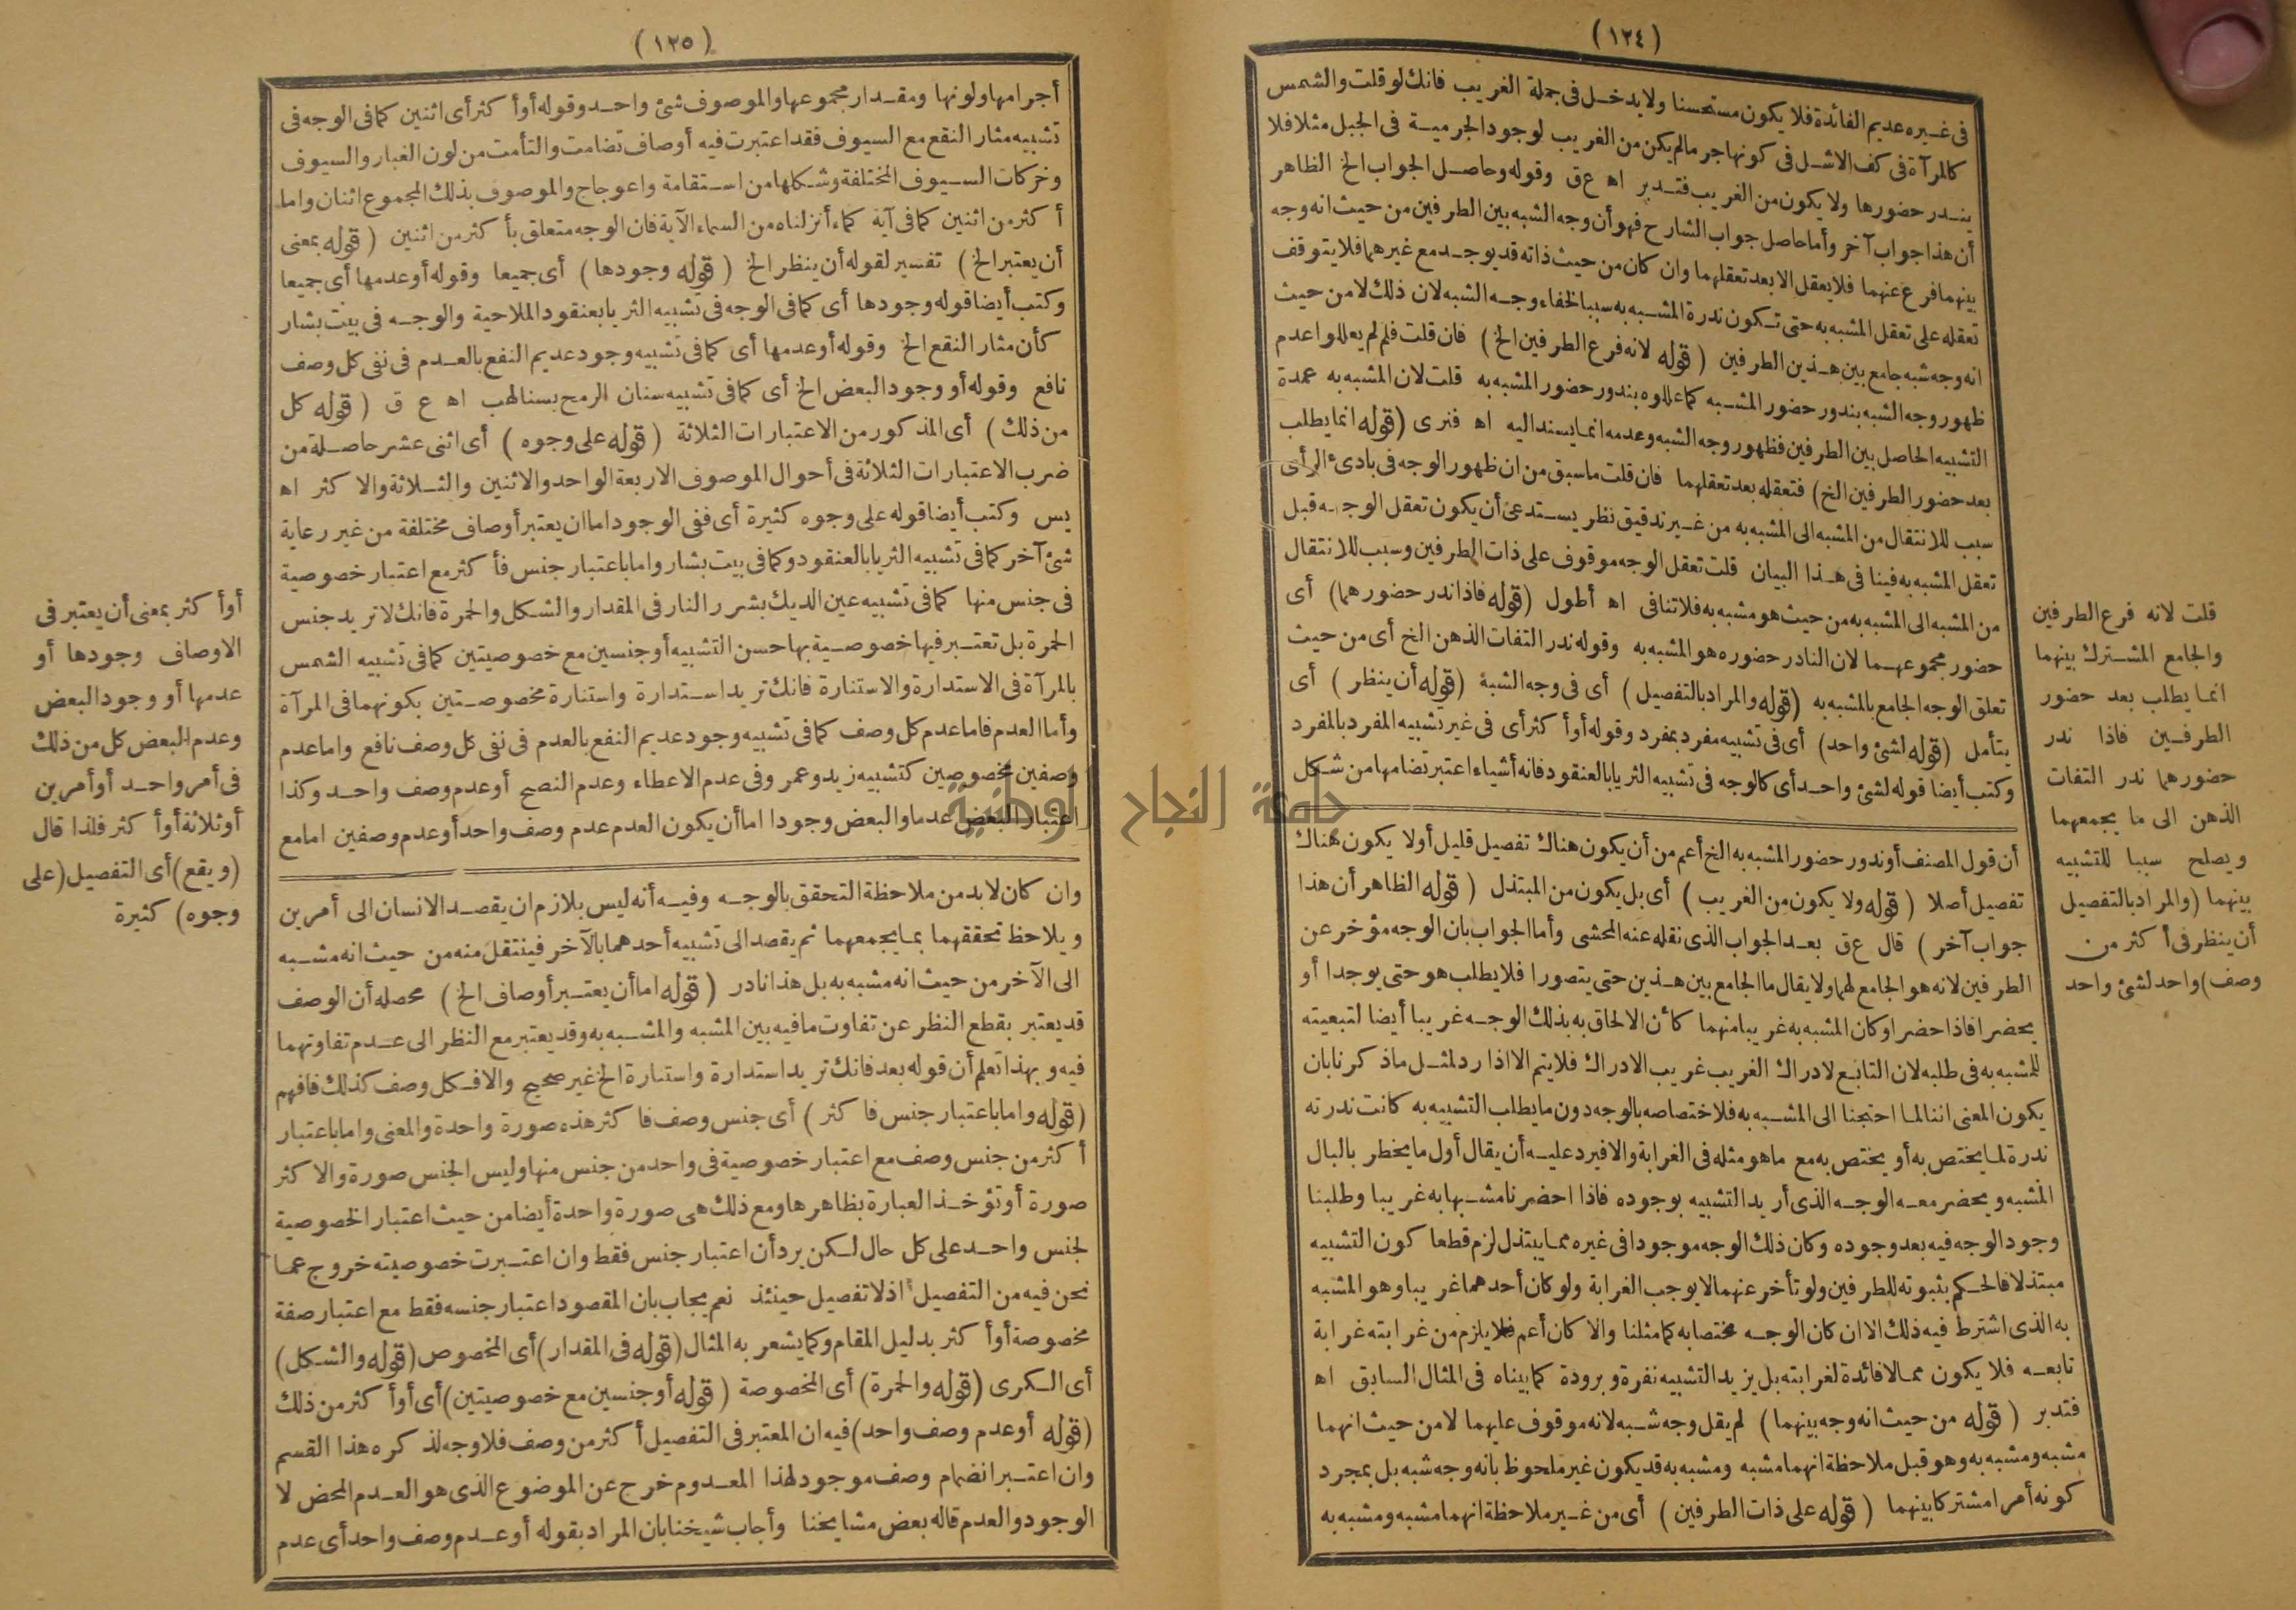 (١٢٤)
فى غيره عديم الفائدة فلا يكون مستحسنا ولا يدخل فى جملة الغريب فانك لو قلت والشمس
كالمرآة فى كف الاشل فى كونها جرما لم يكن من الغريب لوجود الجرمية فى الجبل مثلا فلا
يندر حضورها ولا يكون من الغريب فتدبر اه ع ق وقوله وحاصل الجواب الخ الظاهر
أن هذا جواب آخر وأما حاصل جواب الشارح فهو أن وجه الشبه بين الطرفين من حيث انه وجه
بينهما فرع عنهما فلا يعقل الا بعد تعقلهما وان كان من حيث ذاته قد يوجد مع غيرهما فلا يتوقف
تعقله على تعقل المشبه به حتى تكون ندرة المشبه به سببا لخفاء وجه الشبه لان ذلك لا من حيث
انه وجه شبه جامع بين هذين الطرفين (قوله لانه فرع الطرفين الخ) فان قلت فلم لم يعللوا عدم
ظهور وجه الشبه بندور حضور المشبه كما عللوه بندور حضور المشبه به قلت لان المشبه به عمدة
التشبيه الحاصل بين الطرفين فظهور وجه الشبه وعدمه انما يسند اليه اه فنرى (قوله انما يطلب
بعد حضور الطرفين الخ) فتعقله بعد تعقلهما فان قلت ما سبق من ان ظهور الوجه فى بادئ الرأى
سبب للانتقال من المشبه الى المشبه به من غير تدقيق نظر يستدعى أن يكون تعقل الوجه قبل
تعقل المشبه به فينا فى هذا البيان قلت تعقل الوجه موقوف على ذات الطرفين وسبب للانتقال
من المشبه الى المشبه به من حيث هو مشبه به فلا تنافى اه أطول (قوله فاذا ندر حضورهما) أى
حضور مجموعهما لان النادر حضوره هو المشبه به وقوله ندر التفات الذهن الخ أى من حيث
تعلق الوجه الجامع بالمشبه به (قوله والمراد بالتفصيل) أى فى وجه الشبه (قوله أن ينظر) أى
يتأمل (قوله لشئ واحد) أى فى تشبيه مفرد بمفرد وقوله أو أكثر أى فى غير تشبيه المفرد بالمفرد
وكتب أيضا قوله لشئ واحد أى كالوجه فى تشبيه الثريا بالعنقود فانه أشياء اعتبر تضامها من شكل
أن قول المصنف أو ندور حضور المشبه به الخ أعم من أن يكون هناك تفصيل قليل أو لا يكون هناك
تفصيل أصلا (قوله ولا يكون من الغريب) أى بل يكون من المبتذل (قوله الظاهر أن هذا
جواب آخر) قال ع ق بعد الجواب الذى نقله عنه المحشى وأما الجواب بان الوجه مؤخر عن
الطرفين لانه هو الجامع لهما ولا يقال ما الجامع بين هذين حتى يتصورا فلا يطلب هو حتى يوجدا أو
يحضرا فاذا حضرا وكان المشبه به غريبا منهما كأن الالحاق به بذلك الوجه غريبا أيضا لتبعيته
للمشبه به فى طلبه لان التابع لادراك الغريب غريب الادراك فلا يتم الا اذا رد لمثل ما ذكرنا بان
يكون المعنى اننا لما احتجنا الى المشبه به فلاختصاصه بالوجه دون ما يطلب التشبيه به كانت ندرته
ندرة لما يختص به أو يختص به مع ما هو مثله فى الغرابة والا فيرد عليه أن يقال أول ما يخطر بالبال
المشبه ويحضر معه الوجه الذى أريد التشبيه بوجوده فاذا احضرنا مشبها به غريبا وطلبنا
وجود الوجه فيه بعد وجوده وكان ذلك الوجه موجودا فى غيره مما يبتذل لزم قطعا كون التشبيه
مبتذلا فالحكم بثبوته للطرفين ولو تأخر عنهما لا يوجب الغرابة ولو كان أحدهما غريبا وهو المشبه
به الذى اشترط فيه ذلك الا ان كان الوجه مختصا به كما مثلنا والا كان أعم فلا يلزم من غرابته غرابة
تابعه فلا يكون مما لا فائدة لغرابته بل يزيد التشبيه نفرة وبرودة كما بيناه فى المثال السابق اه
فتدبر (قوله من حيث انه وجه بينهما) لم يقل وجه شبه لانه موقوف عليهما لا من حيث انهما
مشبه ومشبه به وهو قبل ملاحظة انهما مشبه ومشبه به قد يكون غير ملحوظ بانه وجه شبه بل بمجرد
كونه أمرا مشتركا بينهما (قوله على ذات الطرفين) أى من غير ملاحظة انهما مشبه ومشبه به
قلت لانه فرع الطرفين
والجامع المشترك بينهما
انما يطلب بعد حضور
الطرفين فاذا ندر
حضورهما ندر التفات
الذهن الى ما يجمعهما
ويصلح سببا للتشبيه
بينهما (والمراد بالتفصيل
أن ينظر فى أكثر من
وصف) واحد لشئ واحد
(١٢٥)
أجرامها ولونها ومقدار مجموعها والموصوف شئ واحد وقوله أو أكثر أى اثنين كما فى الوجه فى
تشبيه مثار النقع مع السيوف فقد اعتبرت فيه أوصاف تضامت والتأمت من لون الغبار والسيوف
وحركات السيوف المختلفة وشكلها من استقامة واعوجاج والموصوف بذلك المجموع اثنان واما
أكثر من اثنين كما فى آية كماء أنزلناه من السماء الآية فان الوجه متعلق بأكثر من اثنين (قوله بمعنى
أن يعتبر الخ) تفسير لقوله أن ينظر الخ (قوله وجودها) أى جميعا وقوله أو عدمها أى جميعا
وكتب أيضا قوله وجودها أى كما فى الوجه فى تشبيه الثريا بعنقود الملاحية والوجه فى بيت بشار
كأن مثار النقع الخ وقوله أو عدمها أى كما فى تشبيه وجود عديم النفع بالعدم فى نفى كل وصف
نافع وقوله أو وجود البعض الخ أى كما فى تشبيه سنان الرمح بسنا لهب اه ع ق (قوله كل
من ذلك) أى المذكور من الاعتبارات الثلاثة (قوله على وجوه) أى اثنى عشر حاصلة من
ضرب الاعتبارات الثلاثة فى أحوال الموصوف الاربعة الواحد والاثنين والثلاثة والاكثر اه
يس وكتب أيضا قوله على وجوه كثيرة أى ففى الوجود اما ان يعتبر أوصاف مختلفة من غير رعاية
شئ آخر كما فى تشبيه الثريا بالعنقود وكما فى بيت بشار واما باعتبار جنس فأكثر مع اعتبار خصوصية
فى جنس منها كما فى تشبيه عين الديك بشرر النار فى المقدار والشكل والحمرة فانك لا تريد جنس
الحمرة بل تعتبر فيها خصوصية بها حسن التشبيه أو جنسين مع خصوصيتين كما فى تشبيه الشمس
بالمرآة فى الاستدارة والاستنارة فانك تريد استدارة واستنارة مخصوصتين بكونهما فى المرآة
وأما العدم فاما عدم كل وصف كما فى تشبيه وجود عديم النفع بالعدم فى نفى كل وصف نافع واما عدم
وصفين مخصوصين كتشبيه زيد وعمر وفى عدم الاعطاء وعدم النصح أو عدم وصف واحد وكذا
اعتبار البعض عدما والبعض وجودا اما أن يكون العدم عدم وصف واحد أو عدم وصفين اما مع
وان كان لا بد من ملاحظة التحقق بالوجه وفيه أنه ليس بلازم ان يقصد الانسان الى أمرين
ويلاحظ تحققهما بما يجمعهما ثم يقصد الى تشبيه أحدهما بالآخر فينتقل منه من حيث انه مشبه
الى الآخر من حيث انه مشبه به بل هذا نادر (قوله اما أن يعتبر أوصاف الخ) محصله أن الوصف
قد يعتبر بقطع النظر عن تفاوت ما فيه بين المشبه والمشبه به وقد يعتبر مع النظر الى عدم تفاوتهما
فيه وبهذا تعلم أن قوله بعد فانك تريد استدارة واستنارة الخ غير صحيح والا فكل وصف كذلك فافهم
(قوله واما باعتبار جنس فاكثر) أى جنس وصف فاكثر هذه صورة واحدة والمعنى واما باعتبار
أكثر من جنس وصف مع اعتبار خصوصية فى واحد من جنس منها وليس الجنس صورة والاكثر
صورة أو تؤخذ العبارة بظاهرها ومع ذلك هى صورة واحدة أيضا من حيث اعتبار الخصوصية
لجنس واحد على كل حال لكن يرد أن اعتبار جنس فقط وان اعتبرت خصوصيته خروج عما
نحن فيه من التفصيل اذ لا تفصيل حينئذ نعم يجاب بان المقصود اعتبار جنسه فقط مع اعتبار صفة
مخصوصة أو أكثر بدليل المقام وكما يشعر به المثال (قوله فى المقدار) أى المخصوص (قوله والشكل)
أى الكرى (قوله والحمرة) أى المخصوصة (قوله أو جنسين مع خصوصيتين) أى أو أكثر من ذلك
(قوله أو عدم وصف واحد) فيه ان المعتبر فى التفصيل أكثر من وصف فلا وجه لذكره هذا القسم
وان اعتبر انضمام وصف موجود لهذا المعدوم خرج عن الموضوع الذى هو العدم المحض لا
الوجود والعدم قاله بعض مشايخنا وأجاب شيخنا بان المراد بقوله أو عدم وصف واحد أى عدم
أو أكثر بمعنى أن يعتبر فى
الاوصاف وجودها أو
عدمها أو وجود البعض
وعدم البعض كل من ذلك
فى أمر واحد أو أمرين
أو ثلاثة أو أكثر فلذا قال
(ويقع) أى التفصيل (على
وجوه) كثيرة
جامعة النجاح الوطنية